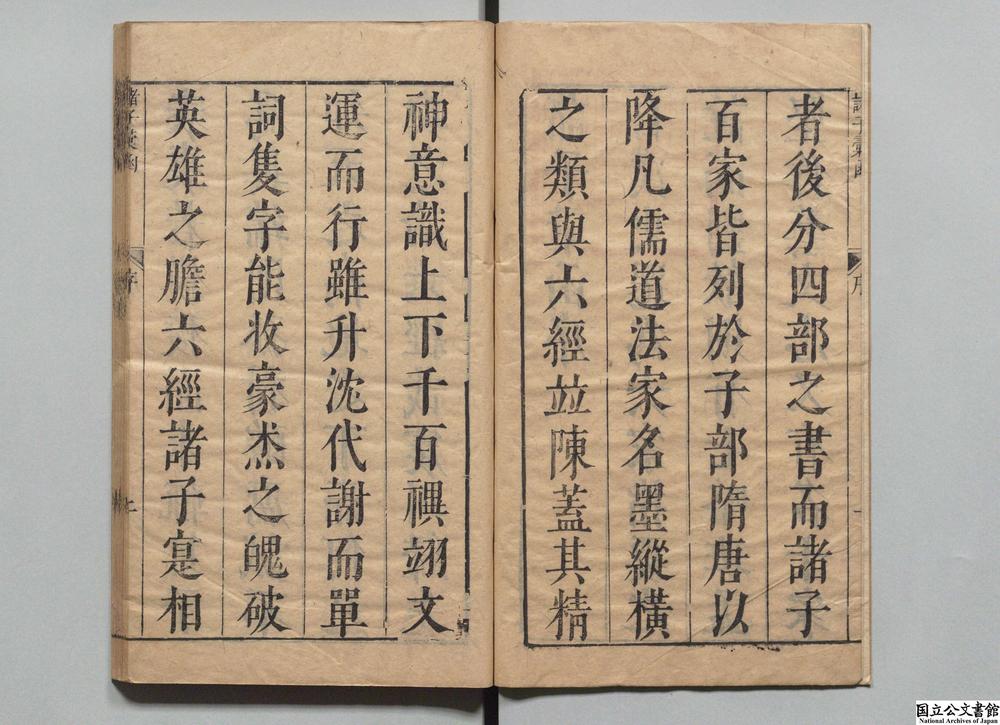 者後分四部之書而諸子
百家皆列於子部隋唐以
降凡儒道法家名墨縱橫
之類與六經並陳蓋其精
神意識上下千百禩翊文
運而行雖升沈代謝而單
詞隻字能收豪杰之魄破
英雄之膽六經諸子寔相
諸子彙函
序
国立公文書館
National Archives of Japan